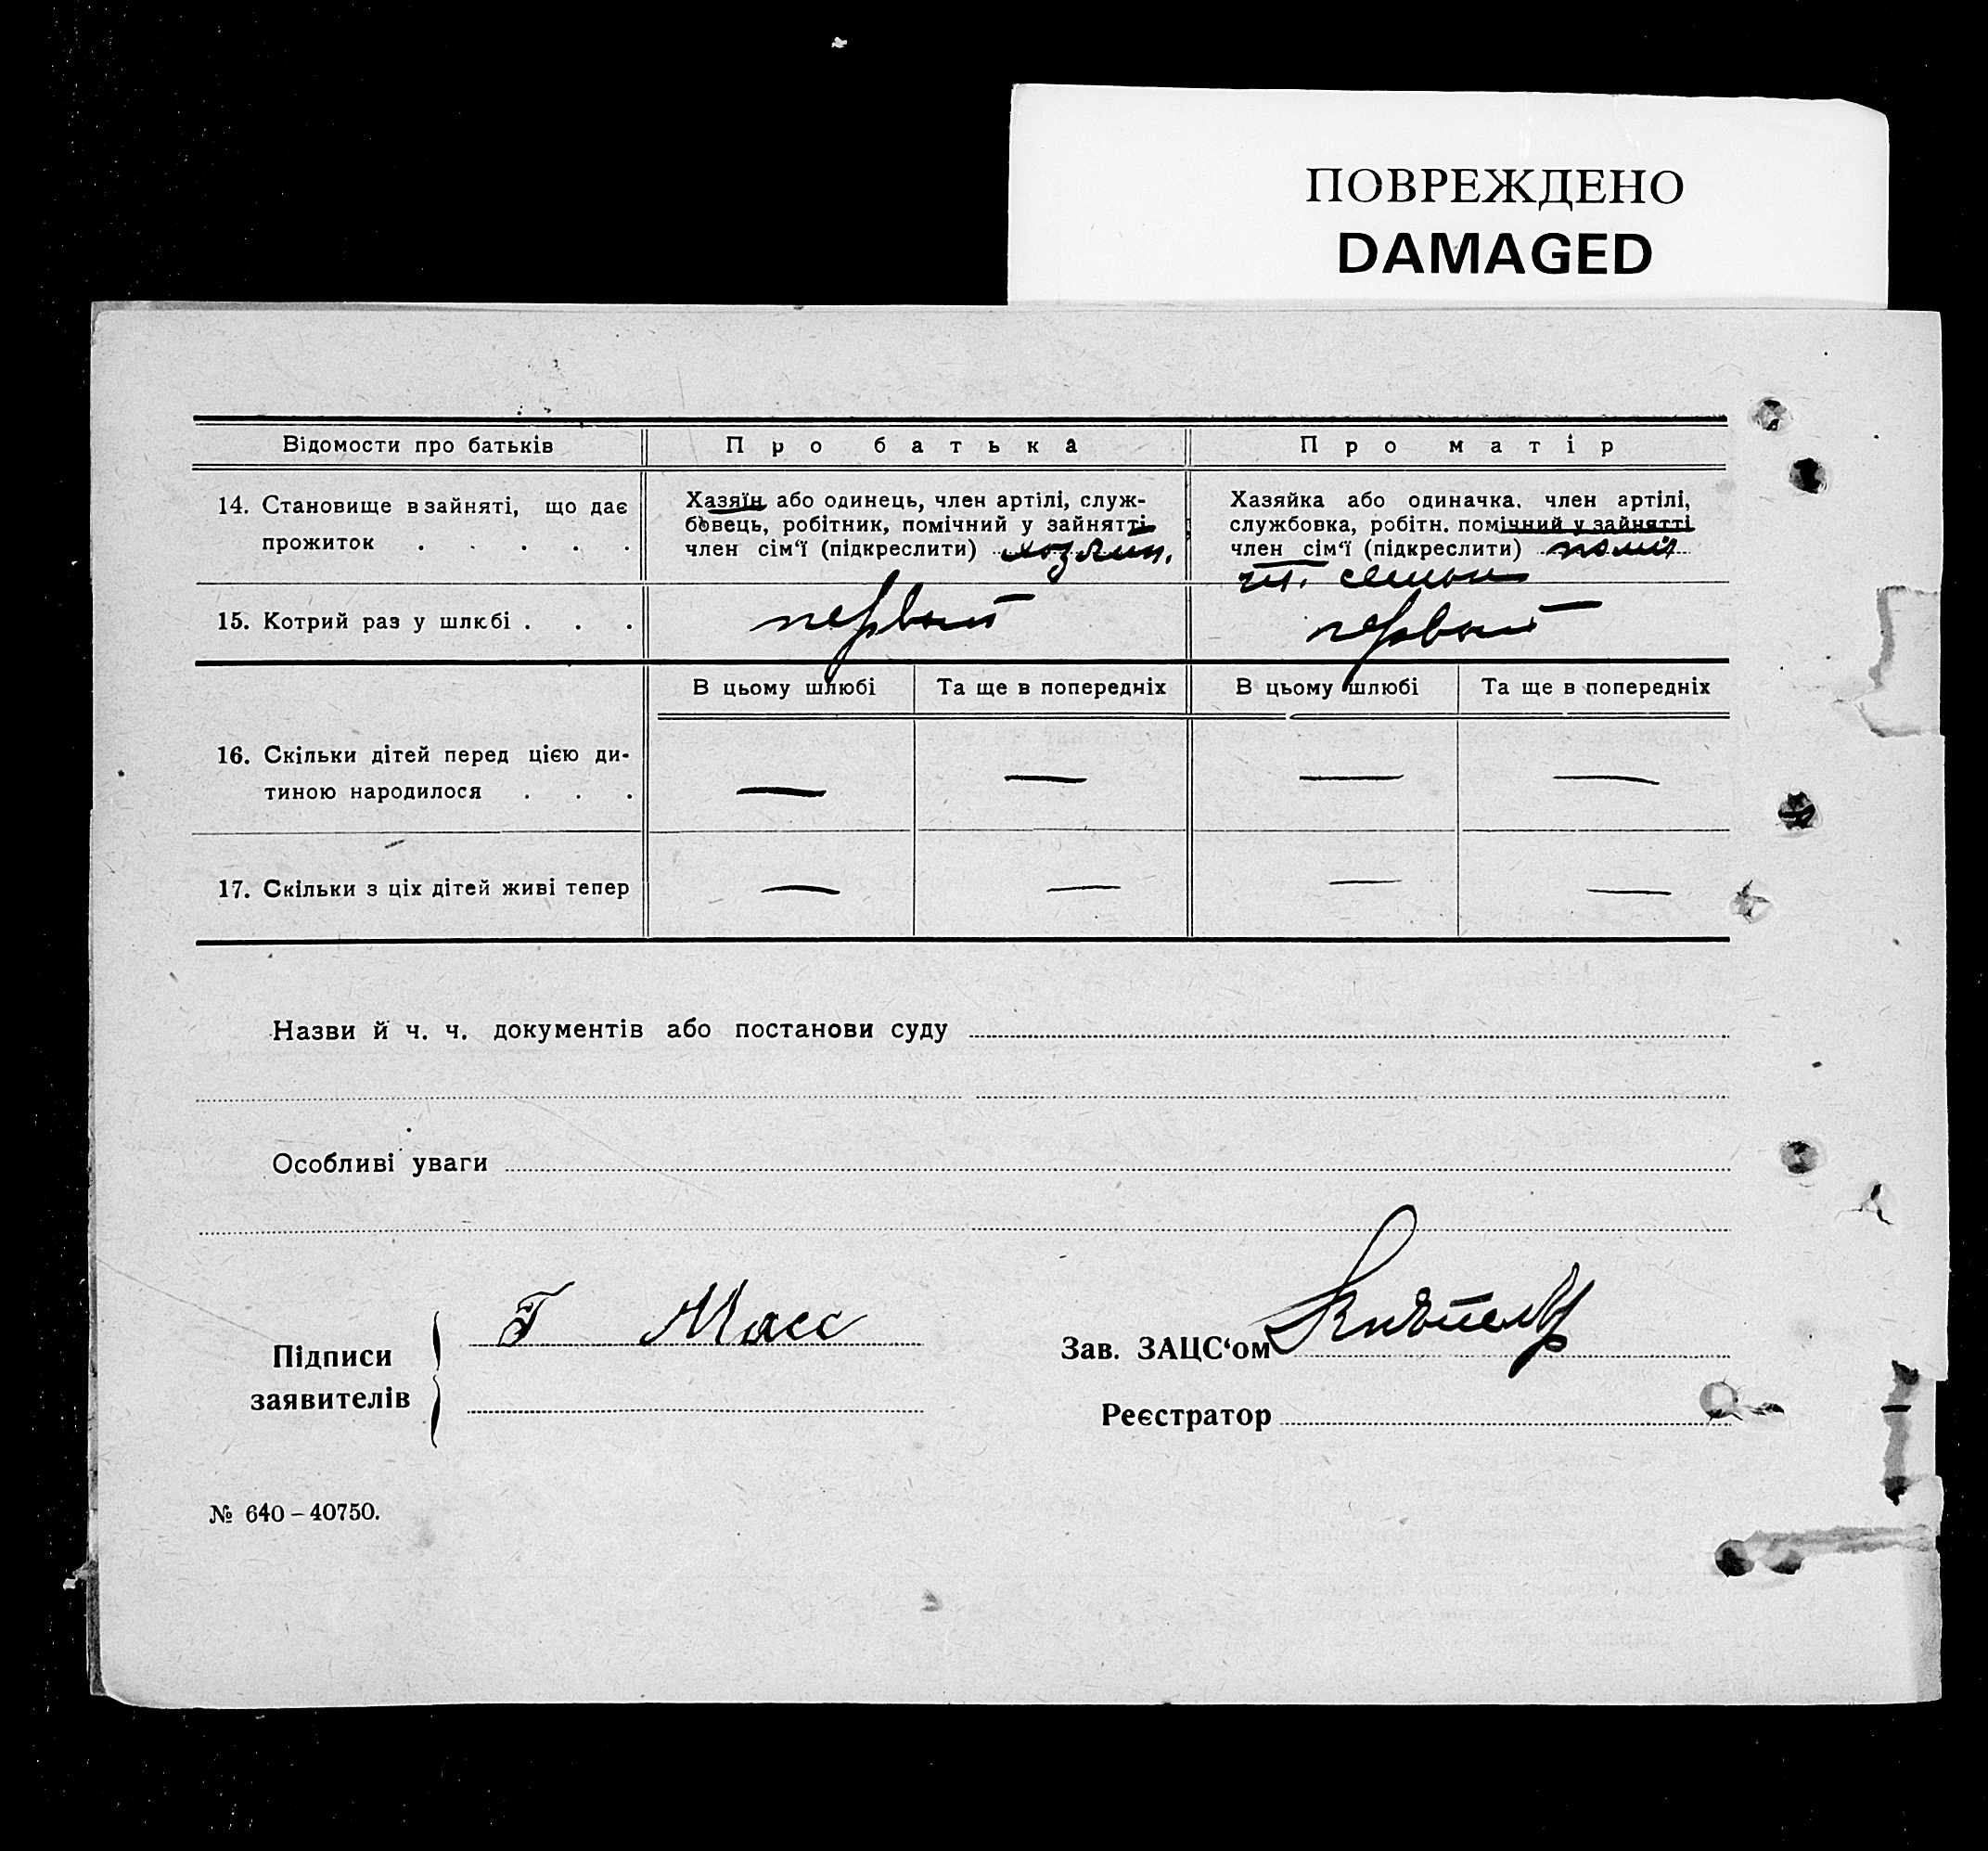 ПОВРЕЖДЕНО
DAMAGED
Відомости про батьків
Про батька
Про матір
14. Становище в зайняті, що дає
прожиток . . . . .
Хазяїн або одинець, член артілі, служ-
бовець, робітник, помічний у зайнятті
член сім‘ї (підкреслити) хозяин.
Хазяйка або одиначка, член артілі,
службовка, робітн. помічний у зайнятті
член сім‘ї (підкреслити) помі
чл. семьи
15. Котрий раз у шлюбі . . .
первый
первый
В цьому шлюбі
Та ще в попередніх
В цьому шлюбі
Та ще в попередніх
16. Скільки дітей перед цією ди-
тиною народилося . . .
— — — —
17. Скільки з ціх дітей живі тепер
— — — —
Назви й ч. ч. документів або постанови суду
Особливі уваги
Підписи
заявителів
Г Масс
Зав. ЗАЦС‘ом
Реєстратор
№ 640 – 40750.